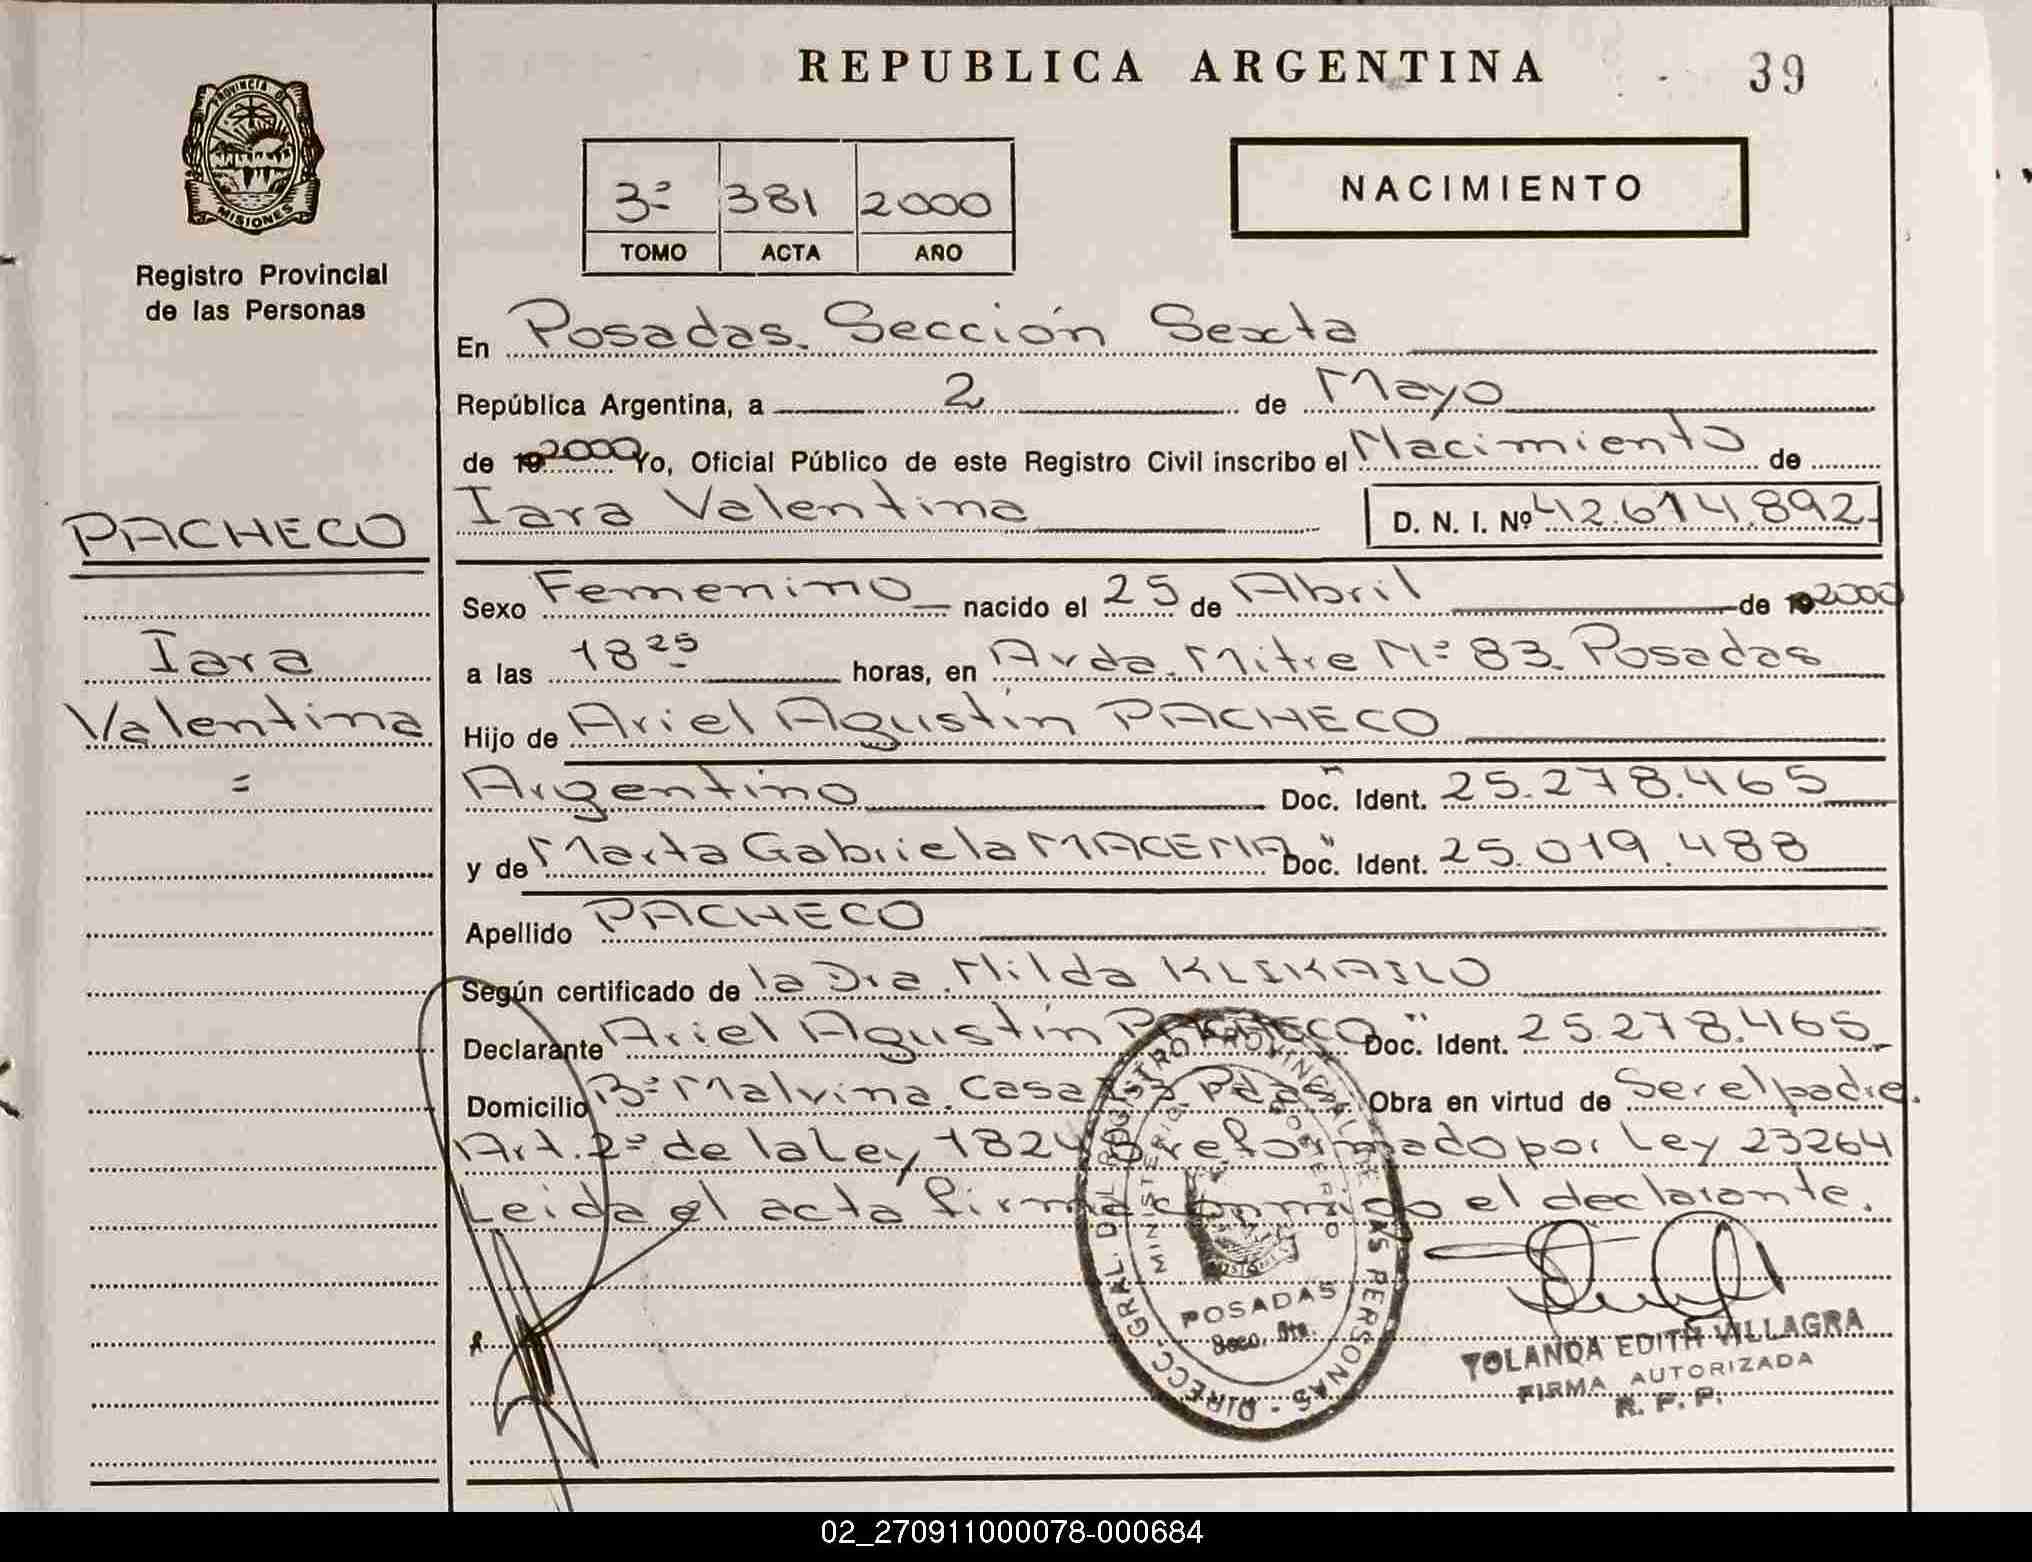 REPUBLICA ARGENTINA
39
PROVINCIA DE
MISIONES
Registro Provincial
de las Personas
3º 381 2000
TOMO ACTA AÑO
NACIMIENTO
En Posadas. Sección Sexta
República Argentina, a 2 de Mayo
de 19 2000 Yo, Oficial Público de este Registro Civil inscribo el Nacimiento de
Iara Valentina D. N. I. Nº 42.614.892
PACHECO
Iara
Valentina
=
Sexo Femenino nacido el 25 de Abril de 19 2000
a las 18 25 horas, en Avda. Mitre Nº 83. Posadas
Hijo de Ariel Agustín PACHECO
Argentino Doc. Ident. 25.278.465
y de Marta Gabriela MACENA " Doc. Ident. 25.019.488
Apellido PACHECO
Según certificado de la Dra. Nilda KLIKAILO
Declarante Ariel Agustín PACHECO " Doc. Ident. 25.278.465
Domicilio Bº Malvina. Casa Pdas. Obra en virtud de Ser el padre.
Art. 2º de la Ley 18248 reformado por Ley 23264
Leida el acta firma conmigo el declarante.
DIRECC. GRAL. DEL REGISTRO PROVINCIAL DE LAS PERSONAS
MINISTERIO DE GOBIERNO
POSADAS
Secc. 6ta.
YOLANDA EDITH VILLAGRA
FIRMA AUTORIZADA
R. P. P.
02_270911000078-000684